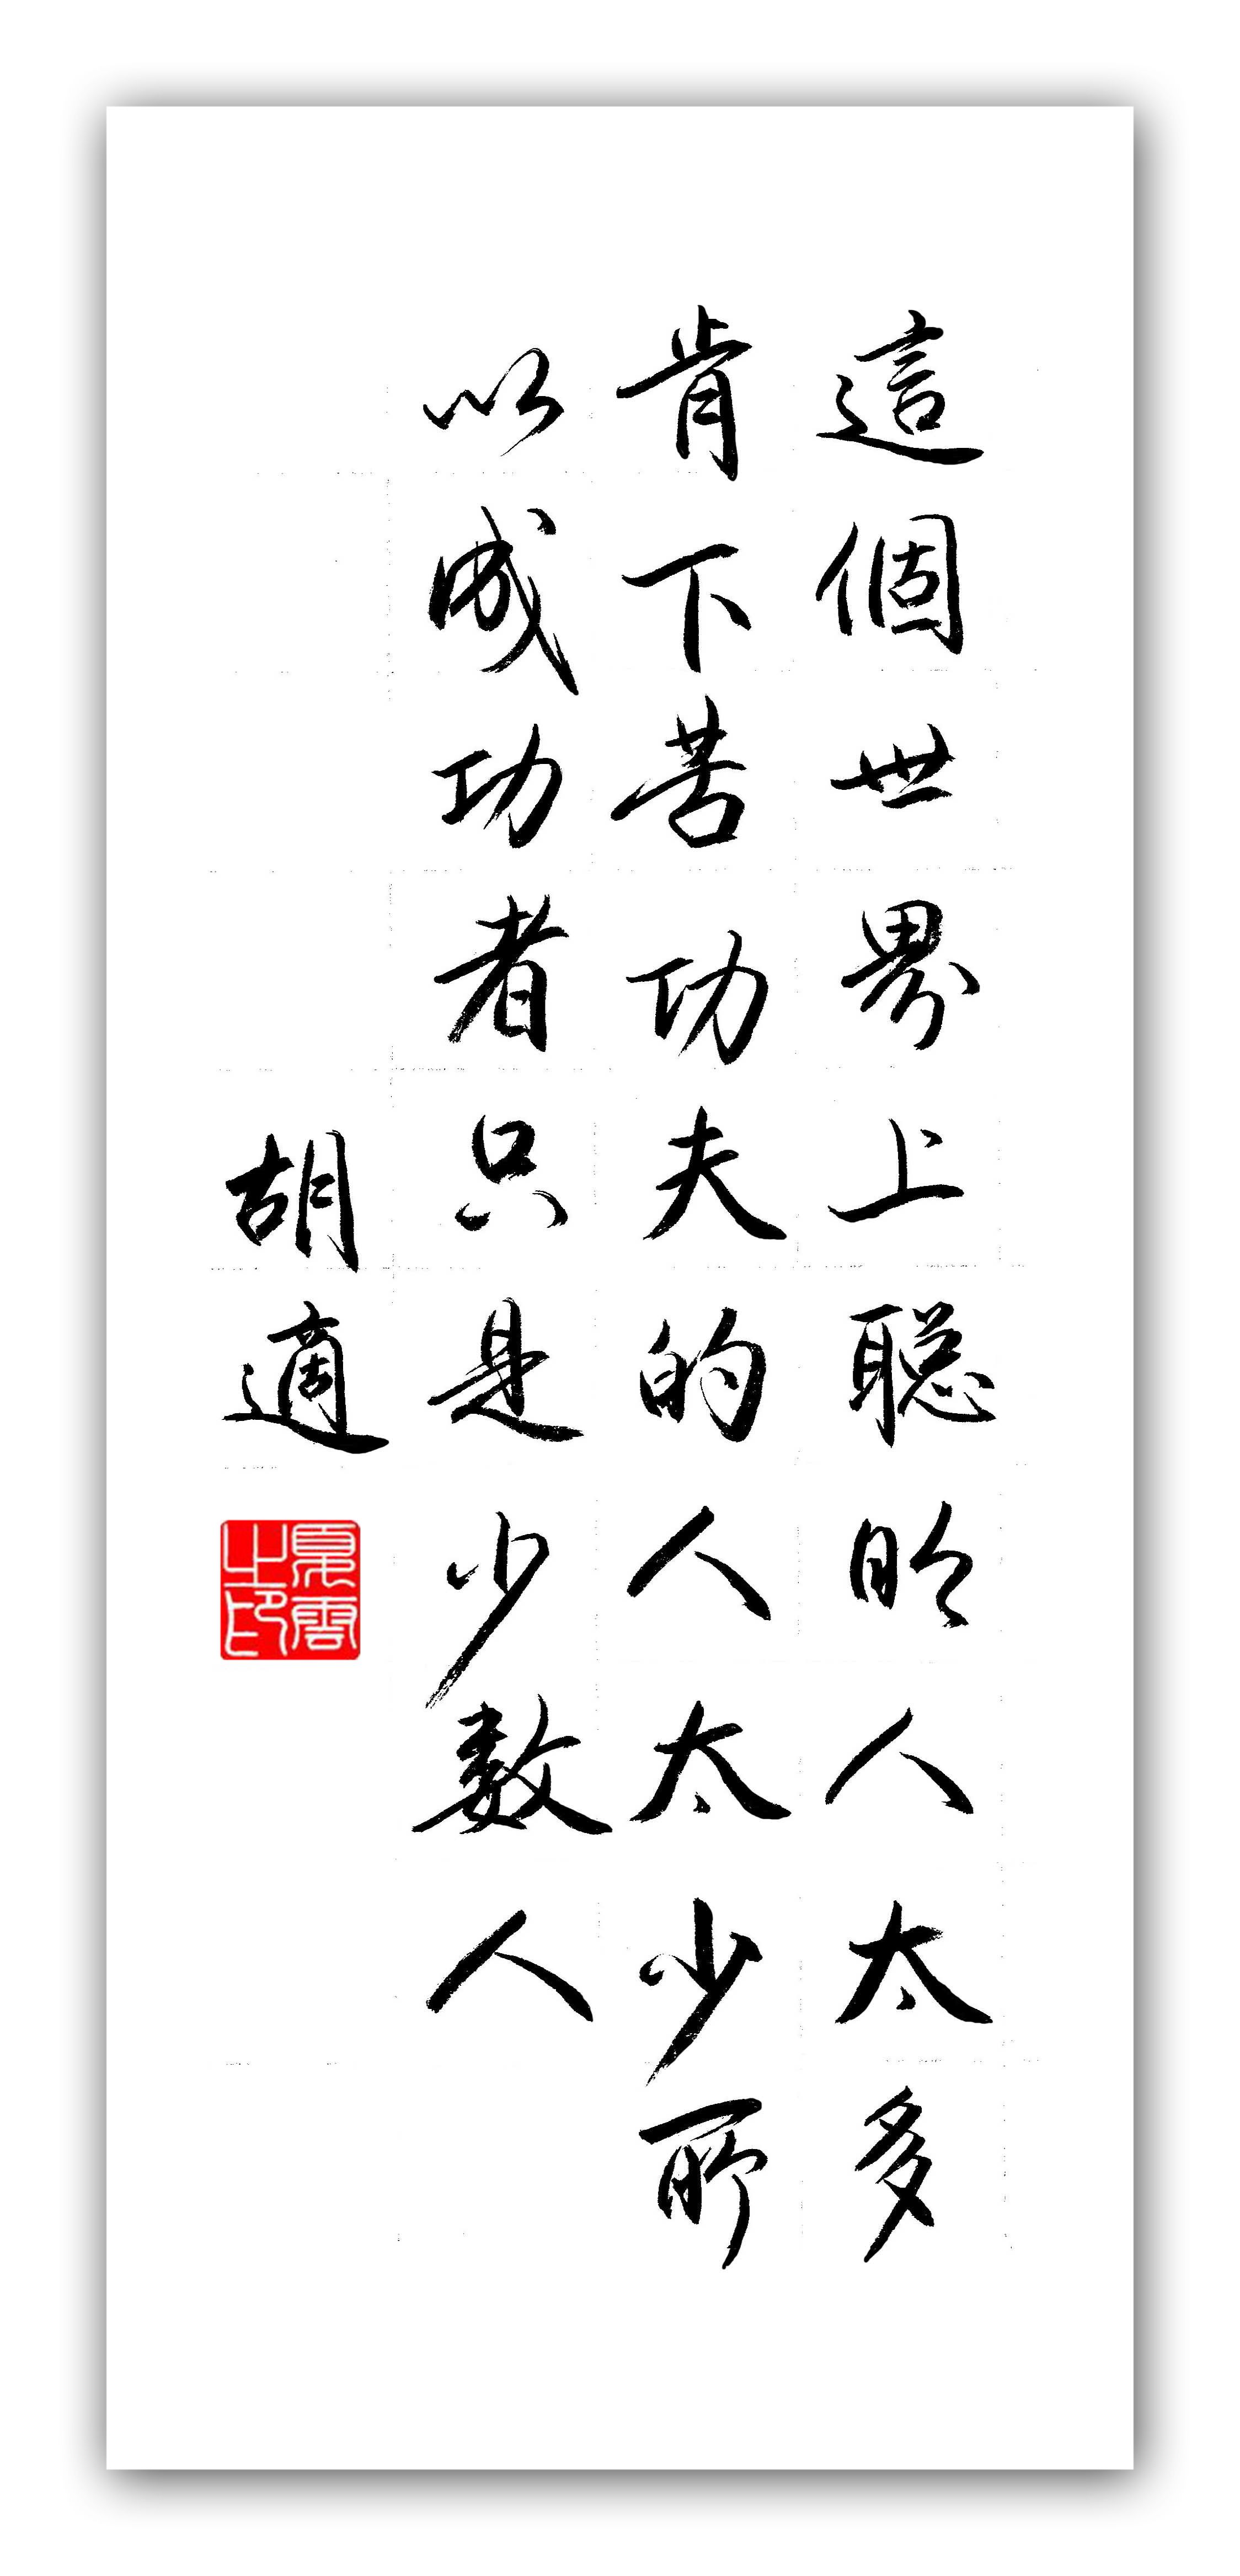 這個世界上聰明人太多
肯下苦功夫的人太少所
以成功者只是少數人
胡適
夏雲之印